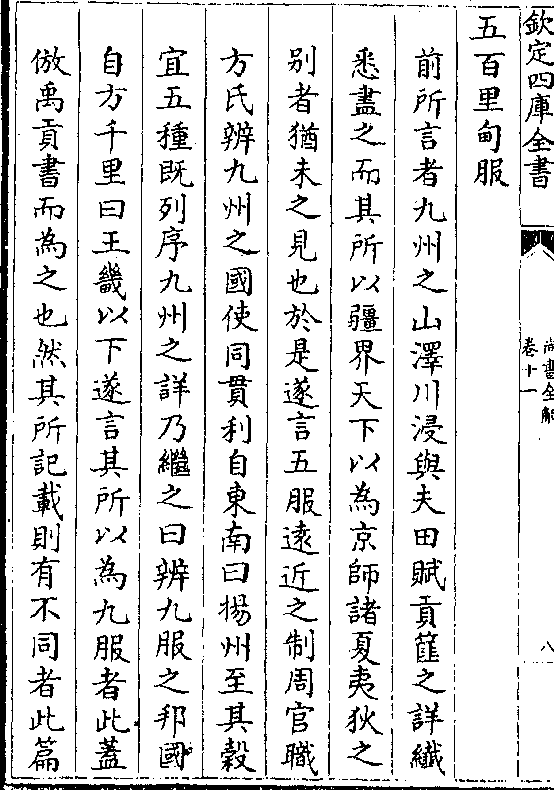 欽定四庫全書
尚書全解
卷十一
八
五百里甸服
前所言者九州之山澤川浸與夫田賦貢篚之詳纖
悉盡之而其所以疆界天下以為京師諸夏夷狄之
别者猶未之見也於是遂言五服逺近之制周官職
方氏辨九州之國使同貫利自東南曰揚州至其穀
宜五種既列序九州之詳乃繼之曰辨九服之邦國
自方千里曰王畿以下遂言其所以為九服者此蓋
倣禹貢書而為之也然其所記載則有不同者此篇